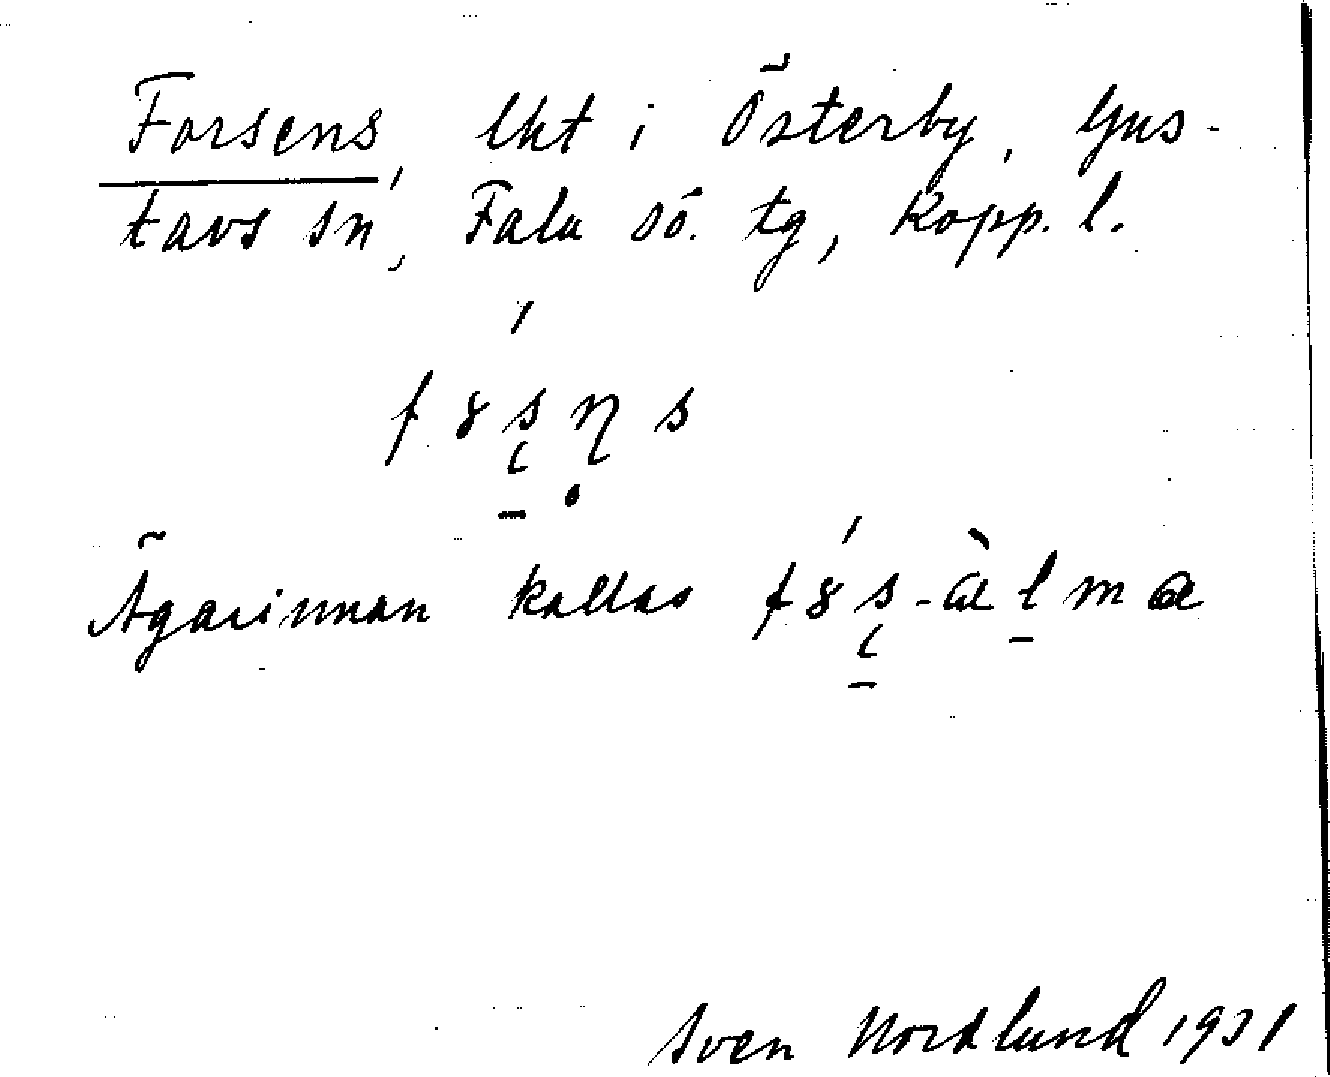 Forsens, lht i Österby, Gus-
tavs sn, Falu sö. tg, Kopp. l.
Ägarinnan kallas
Sven Nordlund 1931